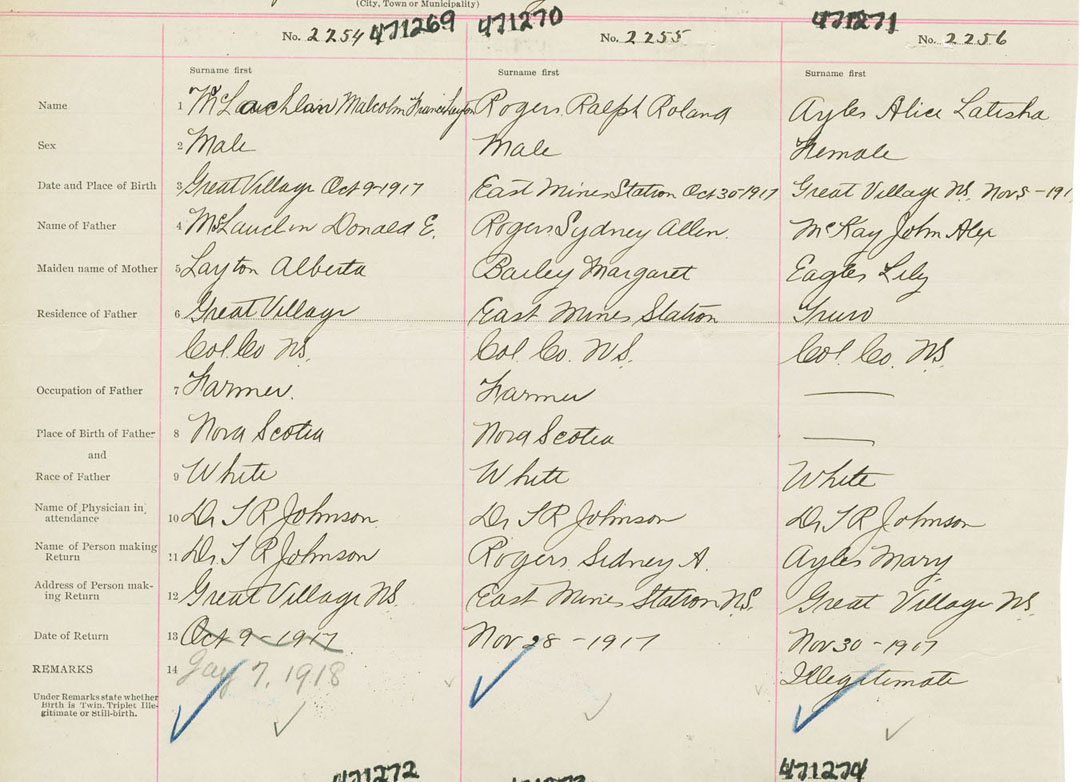 (City, Town or Municipality)
No. 2254 471269 471270 No. 2255 471271 No. 2256
Surname first Surname first Surname first
Name 1 McLauchlan Malcolm Francis Layton Rogers Ralph Roland Ayles Alice Latisha
Sex 2 Male Male Female
Date and Place of Birth 3 Great Village Oct 9-1917 East Mines Station Oct 30-1917 Great Village NS. Nov 5-191
Name of Father 4 McLauclin Donald E. Rogers Sydney Allen. McKay John Alex
Maiden name of Mother 5 Layton Alberta Bailey Margaret Eagles Lily
Residence of Father 6 Great Village East Mines Station Truro
Col. Co NS. Col. Co. NS. Col. Co. NS.
Occupation of Father 7 Farmer. Farmer ——
Place of Birth of Father 8 Nova Scotia Nova Scotia ——
and
Race of Father 9 White White White
Name of Physician in attendance 10 Dr T R Johnson Dr T R Johnson Dr T R Johnson
Name of Person making Return 11 Dr T R Johnson Rogers Sidney A. Ayles Mary
Address of Person making Return 12 Great Village NS. East Mines Station N.S. Great Village NS.
Date of Return 13 Oct 9-1917 Nov 28-1917 Nov 30-1917
REMARKS 14 7, 1918 Illegitimate
Under Remarks state whether
Birth is Twin, Triplet Ille-
gitimate or Still-birth.
471272 471274